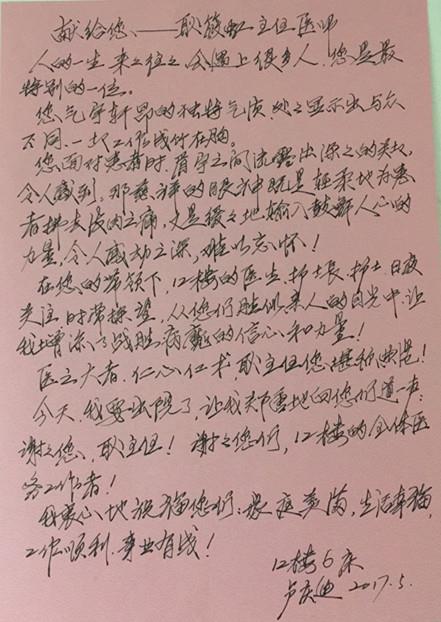 献给您、——耿筱虹主任医师
人的一生来之往之会遇上很多人,您是最
特别的一位。
您气宇轩昂的独特气质处之显示出与众
不同,一切工作成竹在胸。
您面对患者时,眉宇之间流露出深之的关切,
令人感到。那慈祥的眼神既是轻柔地为患
者拂去淡肉之痛,又是缓之地输入鼓舞人心的
力量,令人感动之深,难以忘怀!
在您的带领下,12楼的医生、护士长、护士,日夜
关注,时常探望,从您们胜似亲人的目光中,让
我增添了战胜病魔的信心和力量!
医之大者,仁心仁术,耿主任您堪称典范!
今天,我要出院了,让我郑重地向您们道一声:
谢之您、耿主任!谢之您们,12楼的全体医
务工作者!
我衷心地祝福您们:家庭美满,生活幸福,
工作顺利,事业有成!
12楼6床
卢庆迪 2017.5.